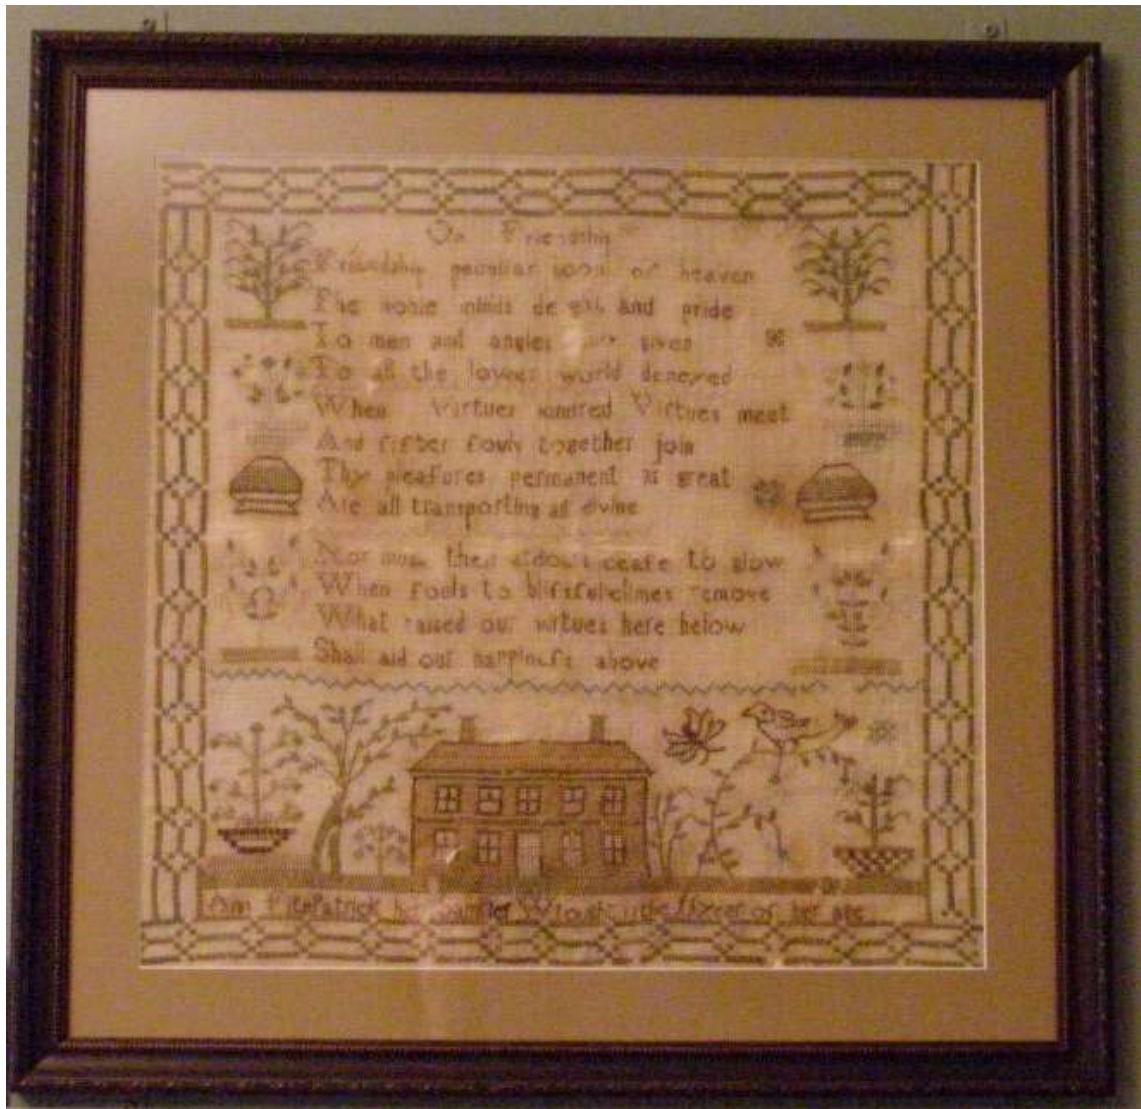 On Friendship
Friendship peculiar boon of heaven
The noble minds de and pride
To men and angles given
To all the lower world deneyed
When Virtues kindred Virtues meet
And fifter fouls together join
Thy pleafures permanent as great
Are all transporting all divine
Nor muft then ardours ceafe to glow
When fouls to blifsful climes remove
What raised our virtues here below
Shall aid our happinefs above
Ann FitzPatrick her Sampler Wrought in the 11 year of her age